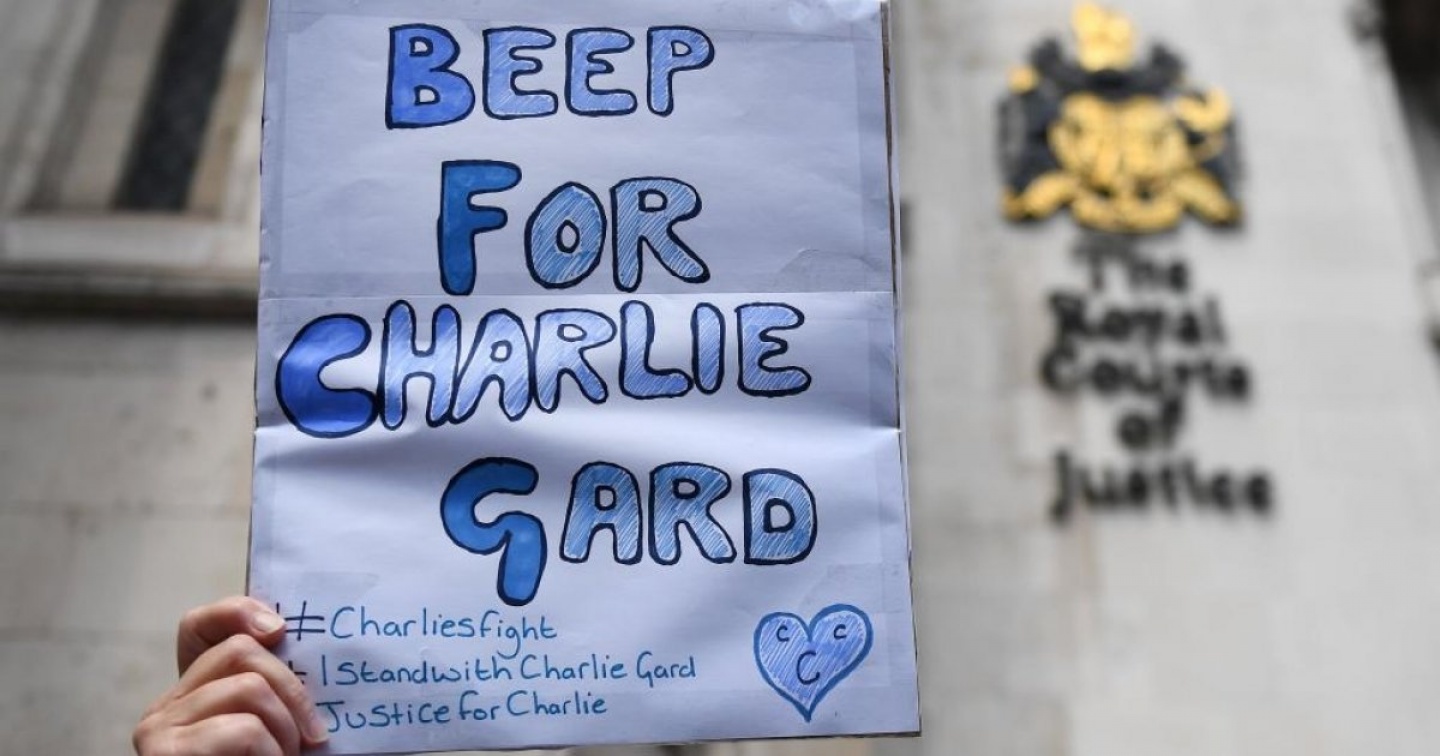 BEEP
FOR
CHARLIE
GARD
#Charliesfight
#IStandwith Charlie Gard
Justice for Charlie
C C
C
The
Royal
Courts
of
Justice